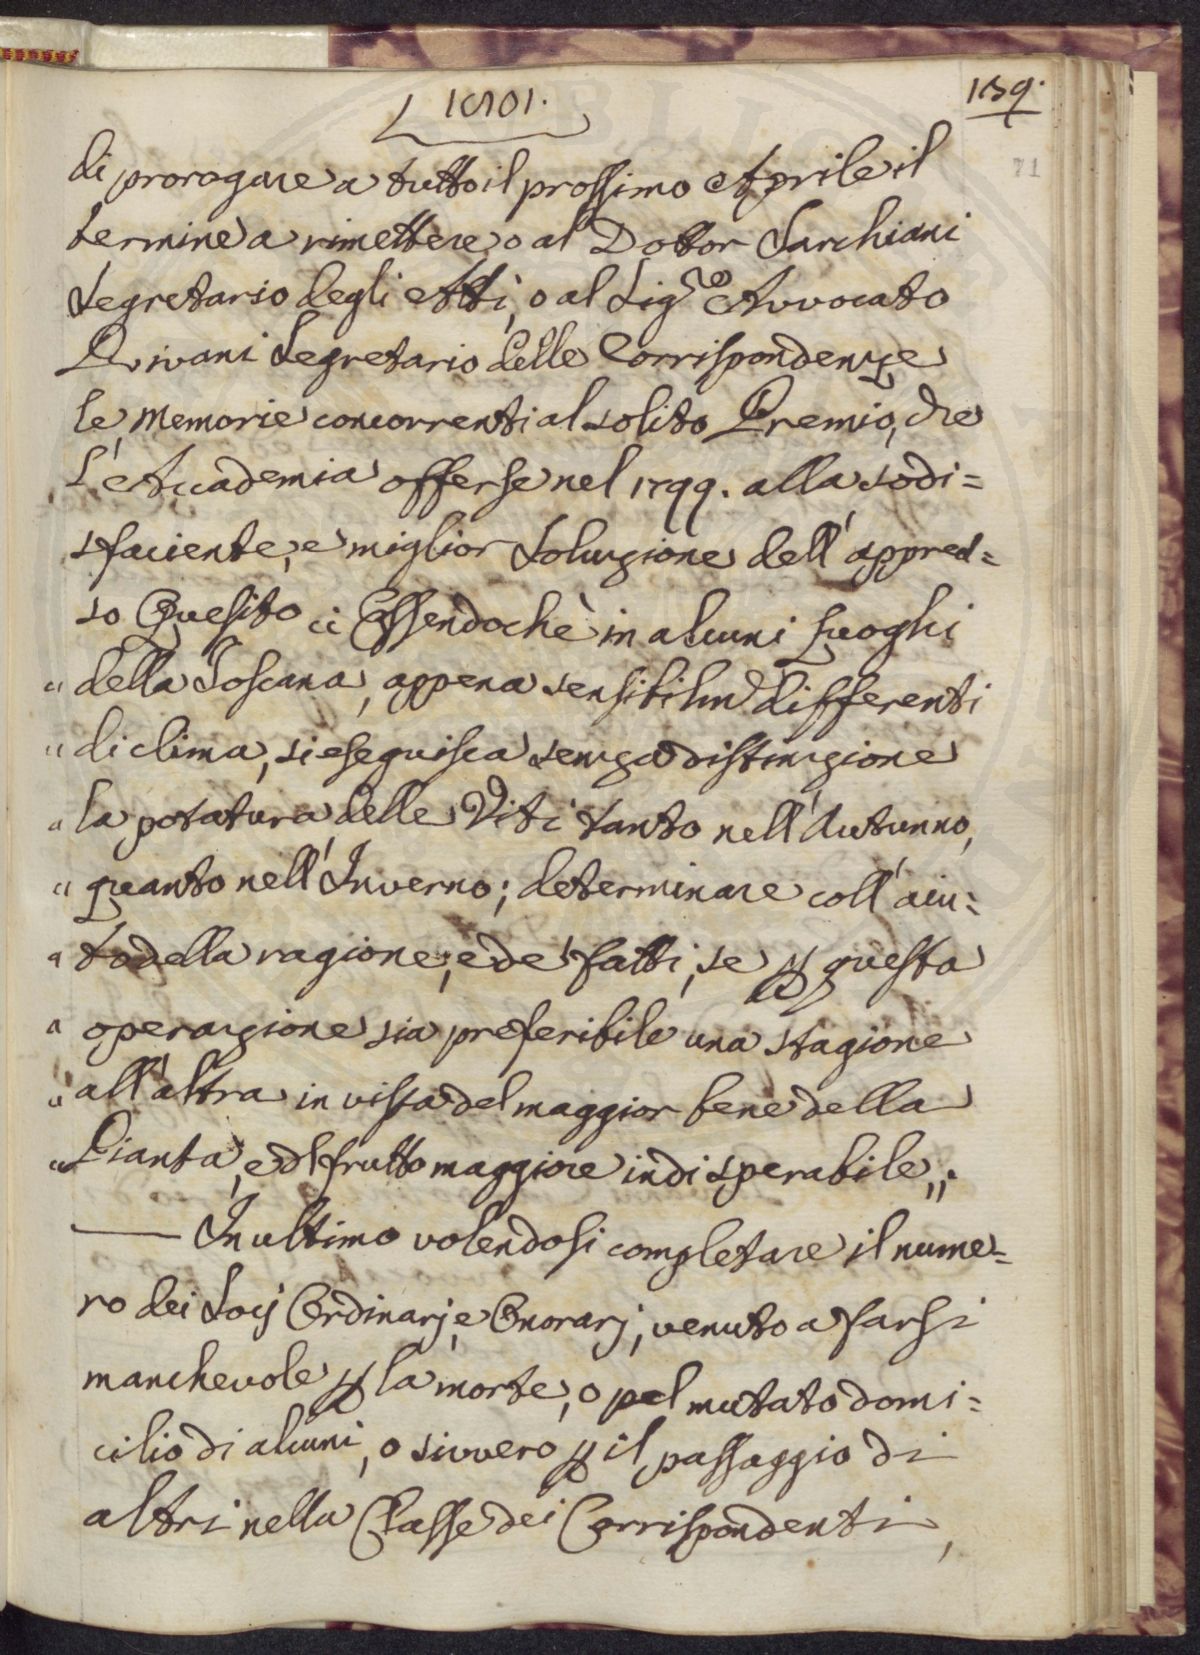 1801.
139.
71
di prorogare a tutto il prossimo Aprile il
termine a rimettere, o al Dottor Sarchiani
Segretario degli Atti, o al Sig.re Avvocato
Rivani Segretario delle Corrispondenze
le Memorie concorrenti al solito Premio, che
l'Accademia offerse nel 1799. alla sodi=
sfaciente, e miglior Soluzione dell'appres=
so Quesito „ Essendochè in alcuni Luoghi
„ della Toscana, appena sensibilm.e differenti
„ di clima, si eseguisca senza distinzione
„ la potatura delle Viti tanto nell'Autunno,
„ quanto nell'Inverno; determinare coll'aiu=
„ to della ragione, e de' fatti, se p questa
„ operazione sia preferibile una stagione
„ all'altra in vista del maggior bene della
„ Pianta, e del frutto maggiore indisperabile „.
— In ultimo volendosi completare il nume=
ro dei Socj Ordinarj, e Onorarj, venuto a farsi
manchevole p la morte, o pel mutato domi=
cilio di alcuni, o sivvero p il passaggio di
altri nella Classe dei Corrispondenti,